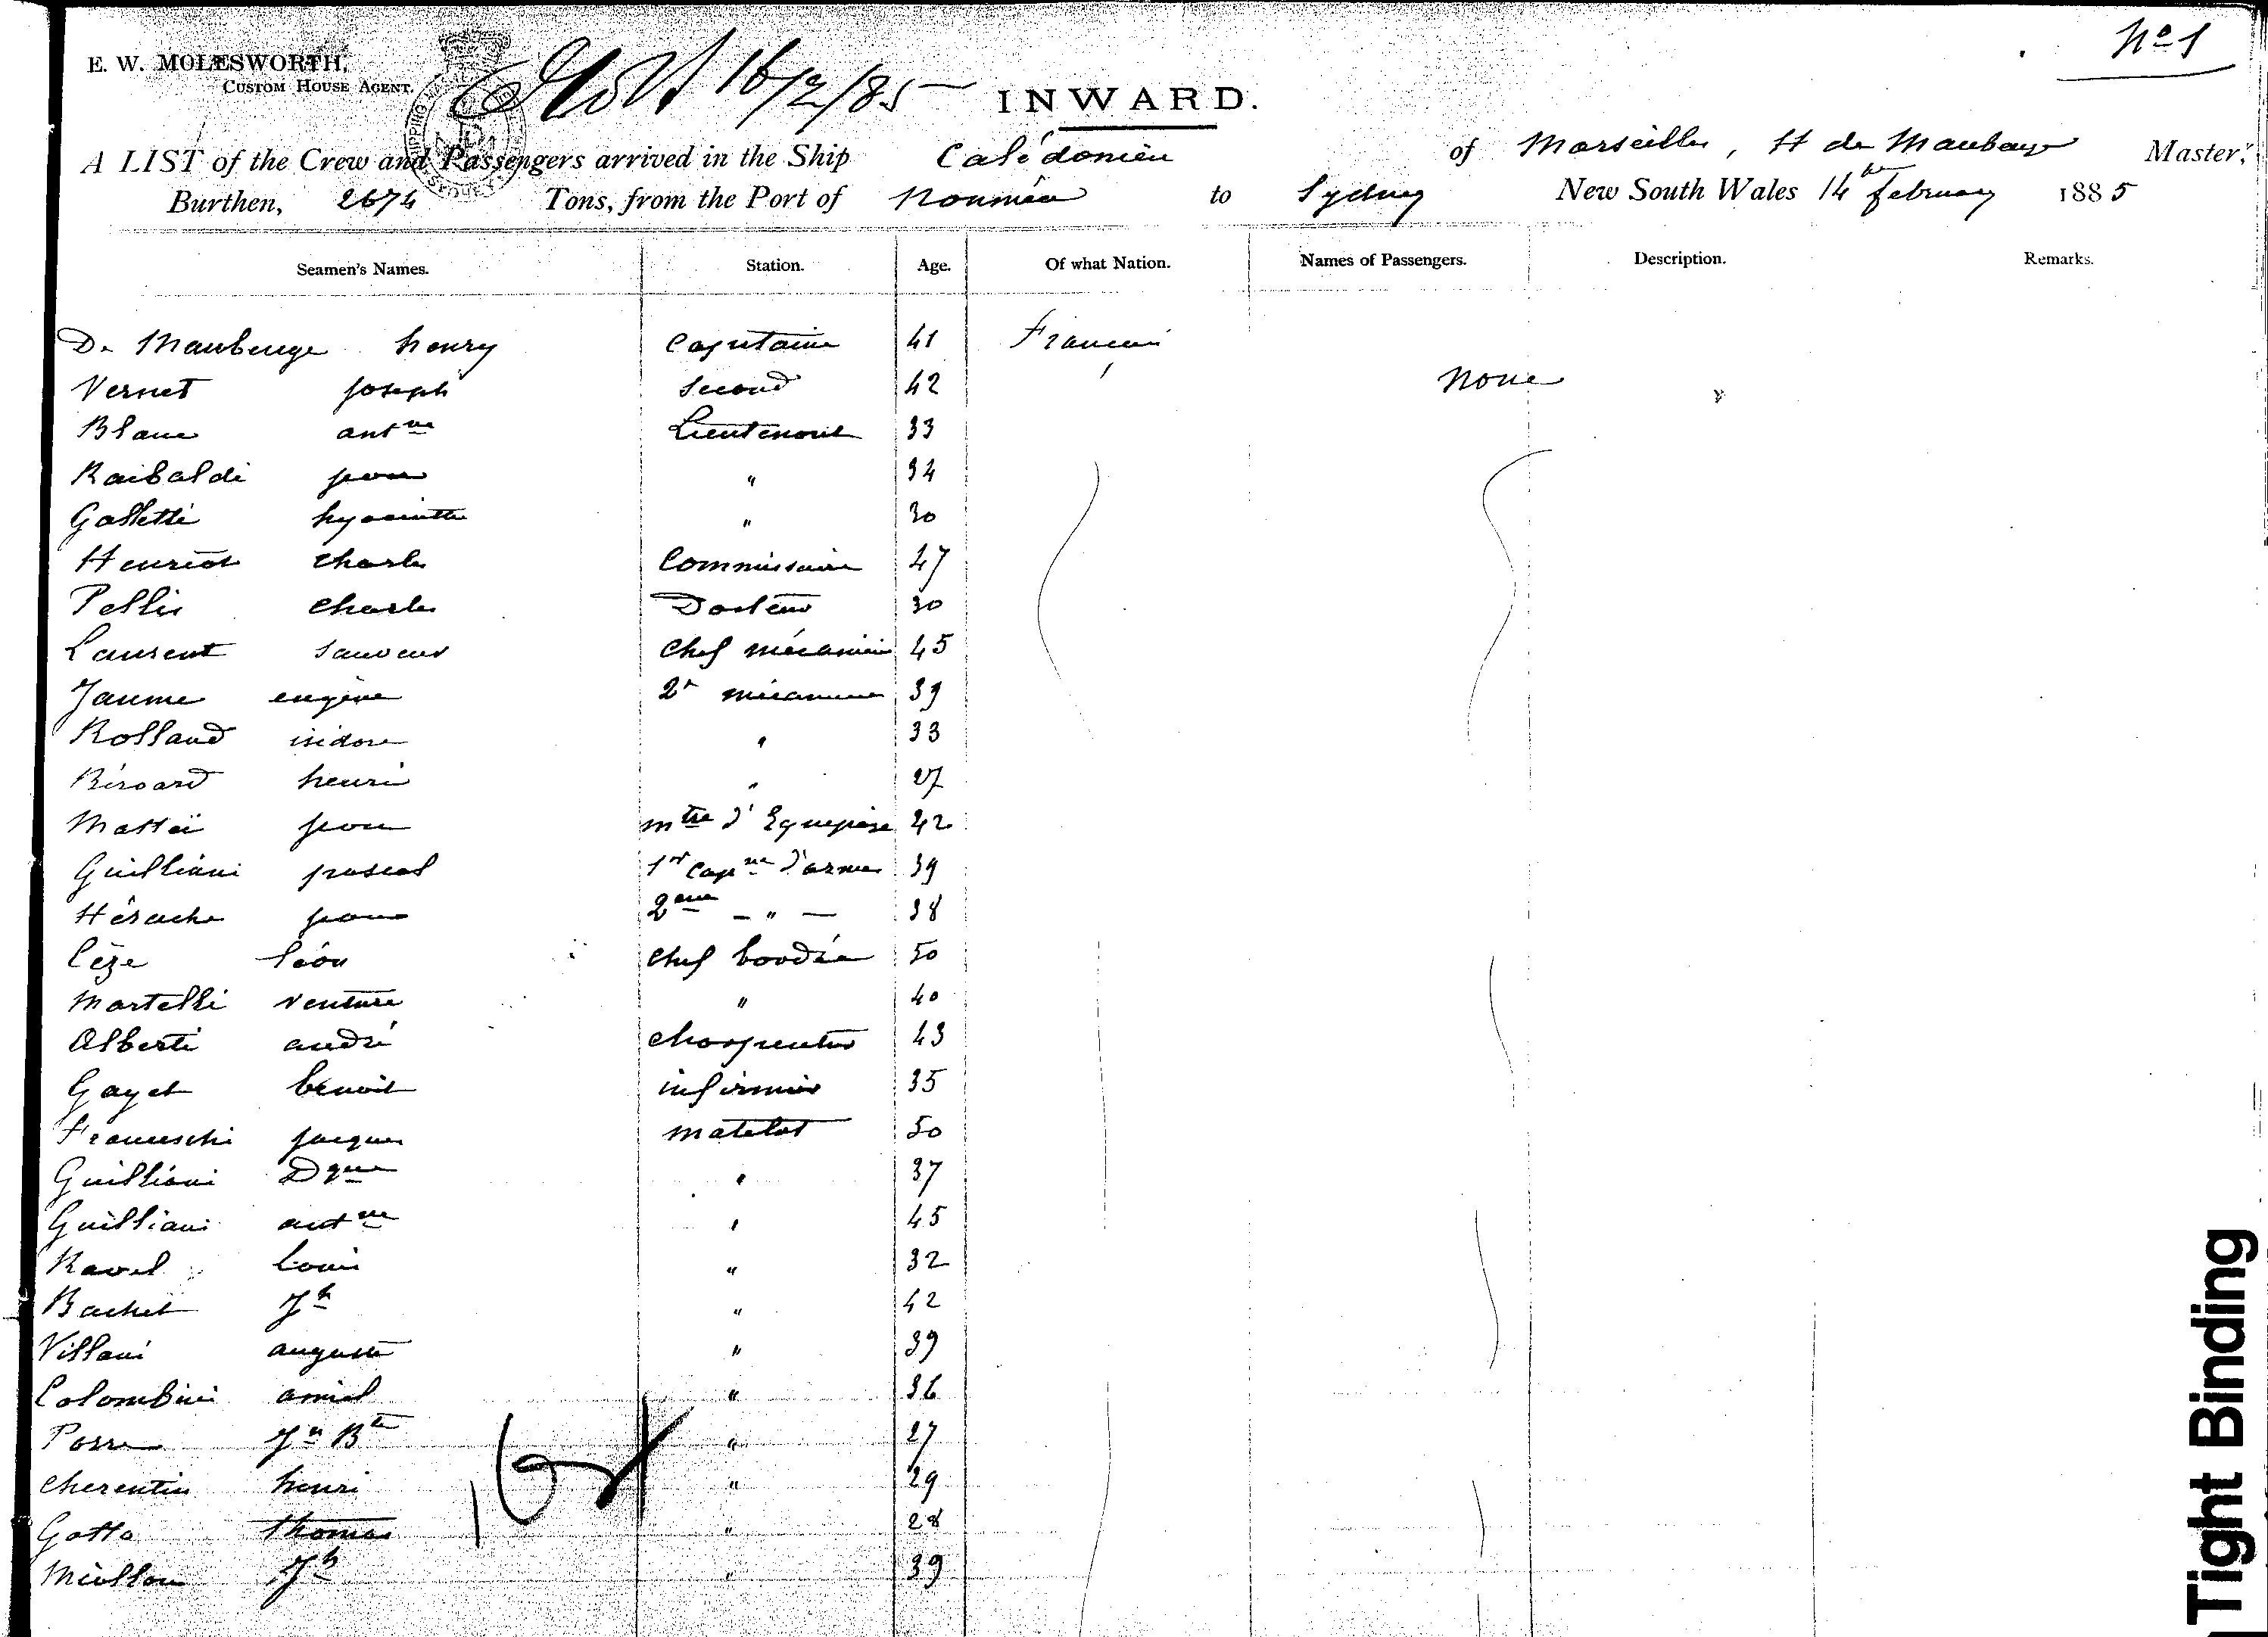 No 1
E. W. MOLESWORTH,
CUSTOM HOUSE AGENT.
16/2/85
INWARD.
A LIST of the Crew and Passengers arrived in the Ship Calédonien of Marseilles, H de Maubeuge Master,
Burthen, 2674 Tons, from the Port of Nouméa to Sydney New South Wales 14th february 1885
Seamen's Names. Station. Age. Of what Nation. Names of Passengers. Description. Remarks.
De Maubeuge henry Capitaine 41 Francais
Vernet joseph Second 42 " none
Blanc antne Lieutenant 33
Raibaldi jean " 34
Galletti hyacinthe " 30
Henriot charles Commissaire 47
Pellis charles Docteur 30
Laurent sauveur chef mécanicien 45
Jaume eugène 2d mécanicien 39
Rolland isidore " 33
Bérard henri " 27
Matteï jean mtre d'Equipage 42
Guilliani pascal 1er capne d'armes 39
Hérache jean 2ème - " - 38
Cèze léon chef 50
Martelli venture " 40
Alberti andré charpentier 43
Gayet benoit infirmier 35
Franceschi jacques matelot 50
Guilliani Dque " 37
Guilliani antne " 45
Ravel louis " 32
Bachet Jh " 42
Villani auguste " 39
Colombini " 36
Jn Bte " 27
cherentin henri " 29
Gatto thomas " 28
Jh " 39
Tight Binding